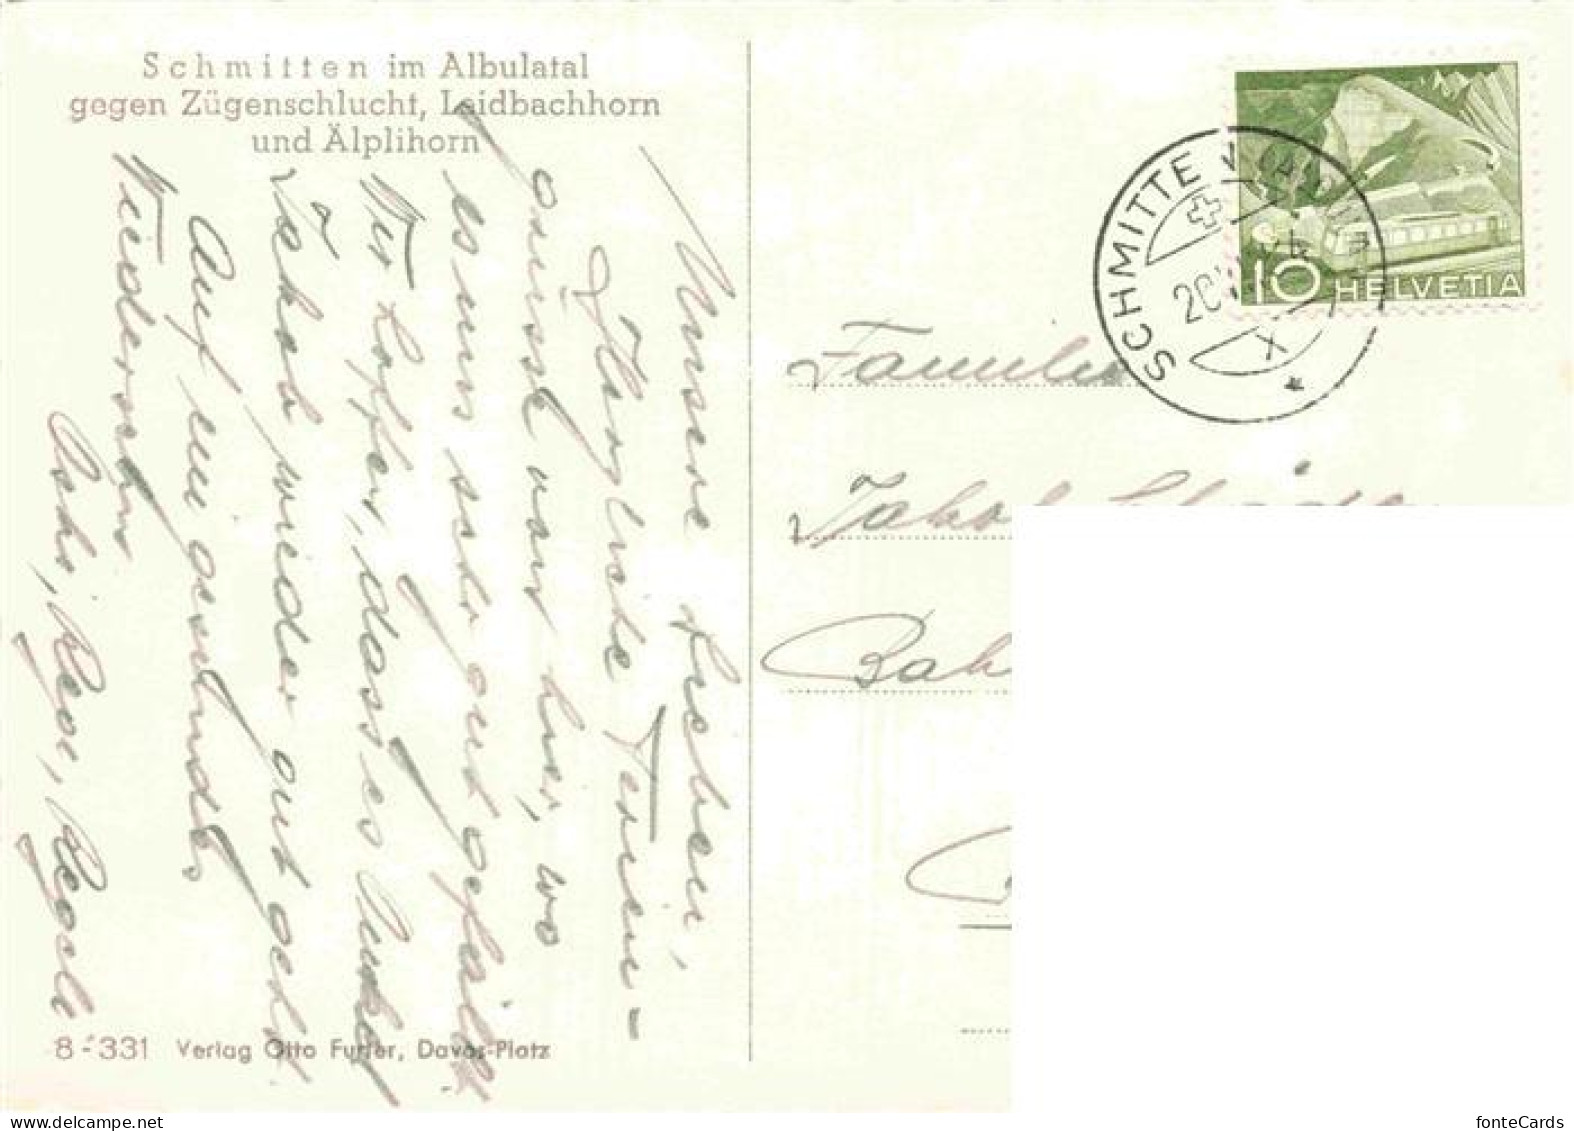 Schmitten im Albulatal
gegen Zügenschlucht, Leidbachhorn
und Älplihorn
Unsere Lieben,
Herzliche Ferien-
grüsse von hier, wo
es uns sehr gut gefällt
Wir hoffen, dass es
Jakob wieder gut geht.
Auf ein gesundes
Wiedersehn
8-331 Verlag Otto Furter, Davos-Platz
SCHMITTEN
20
X
10 HELVETIA
Familie
Jakob
Bah
fonteCards